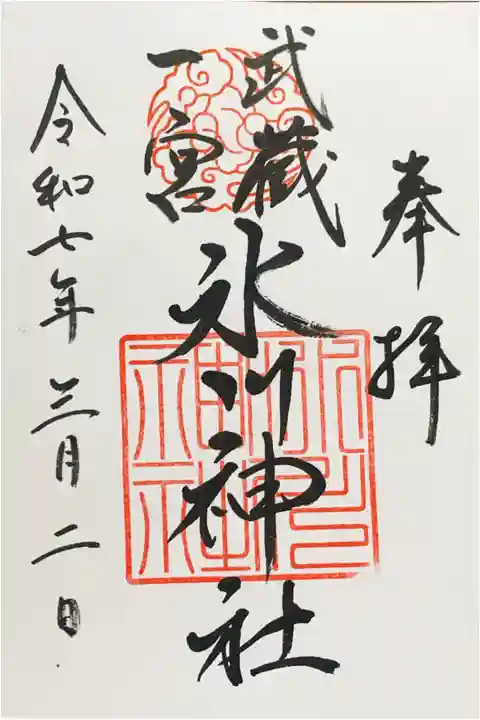 奉拝
武蔵
一宮
氷川神社
令和七年三月二日